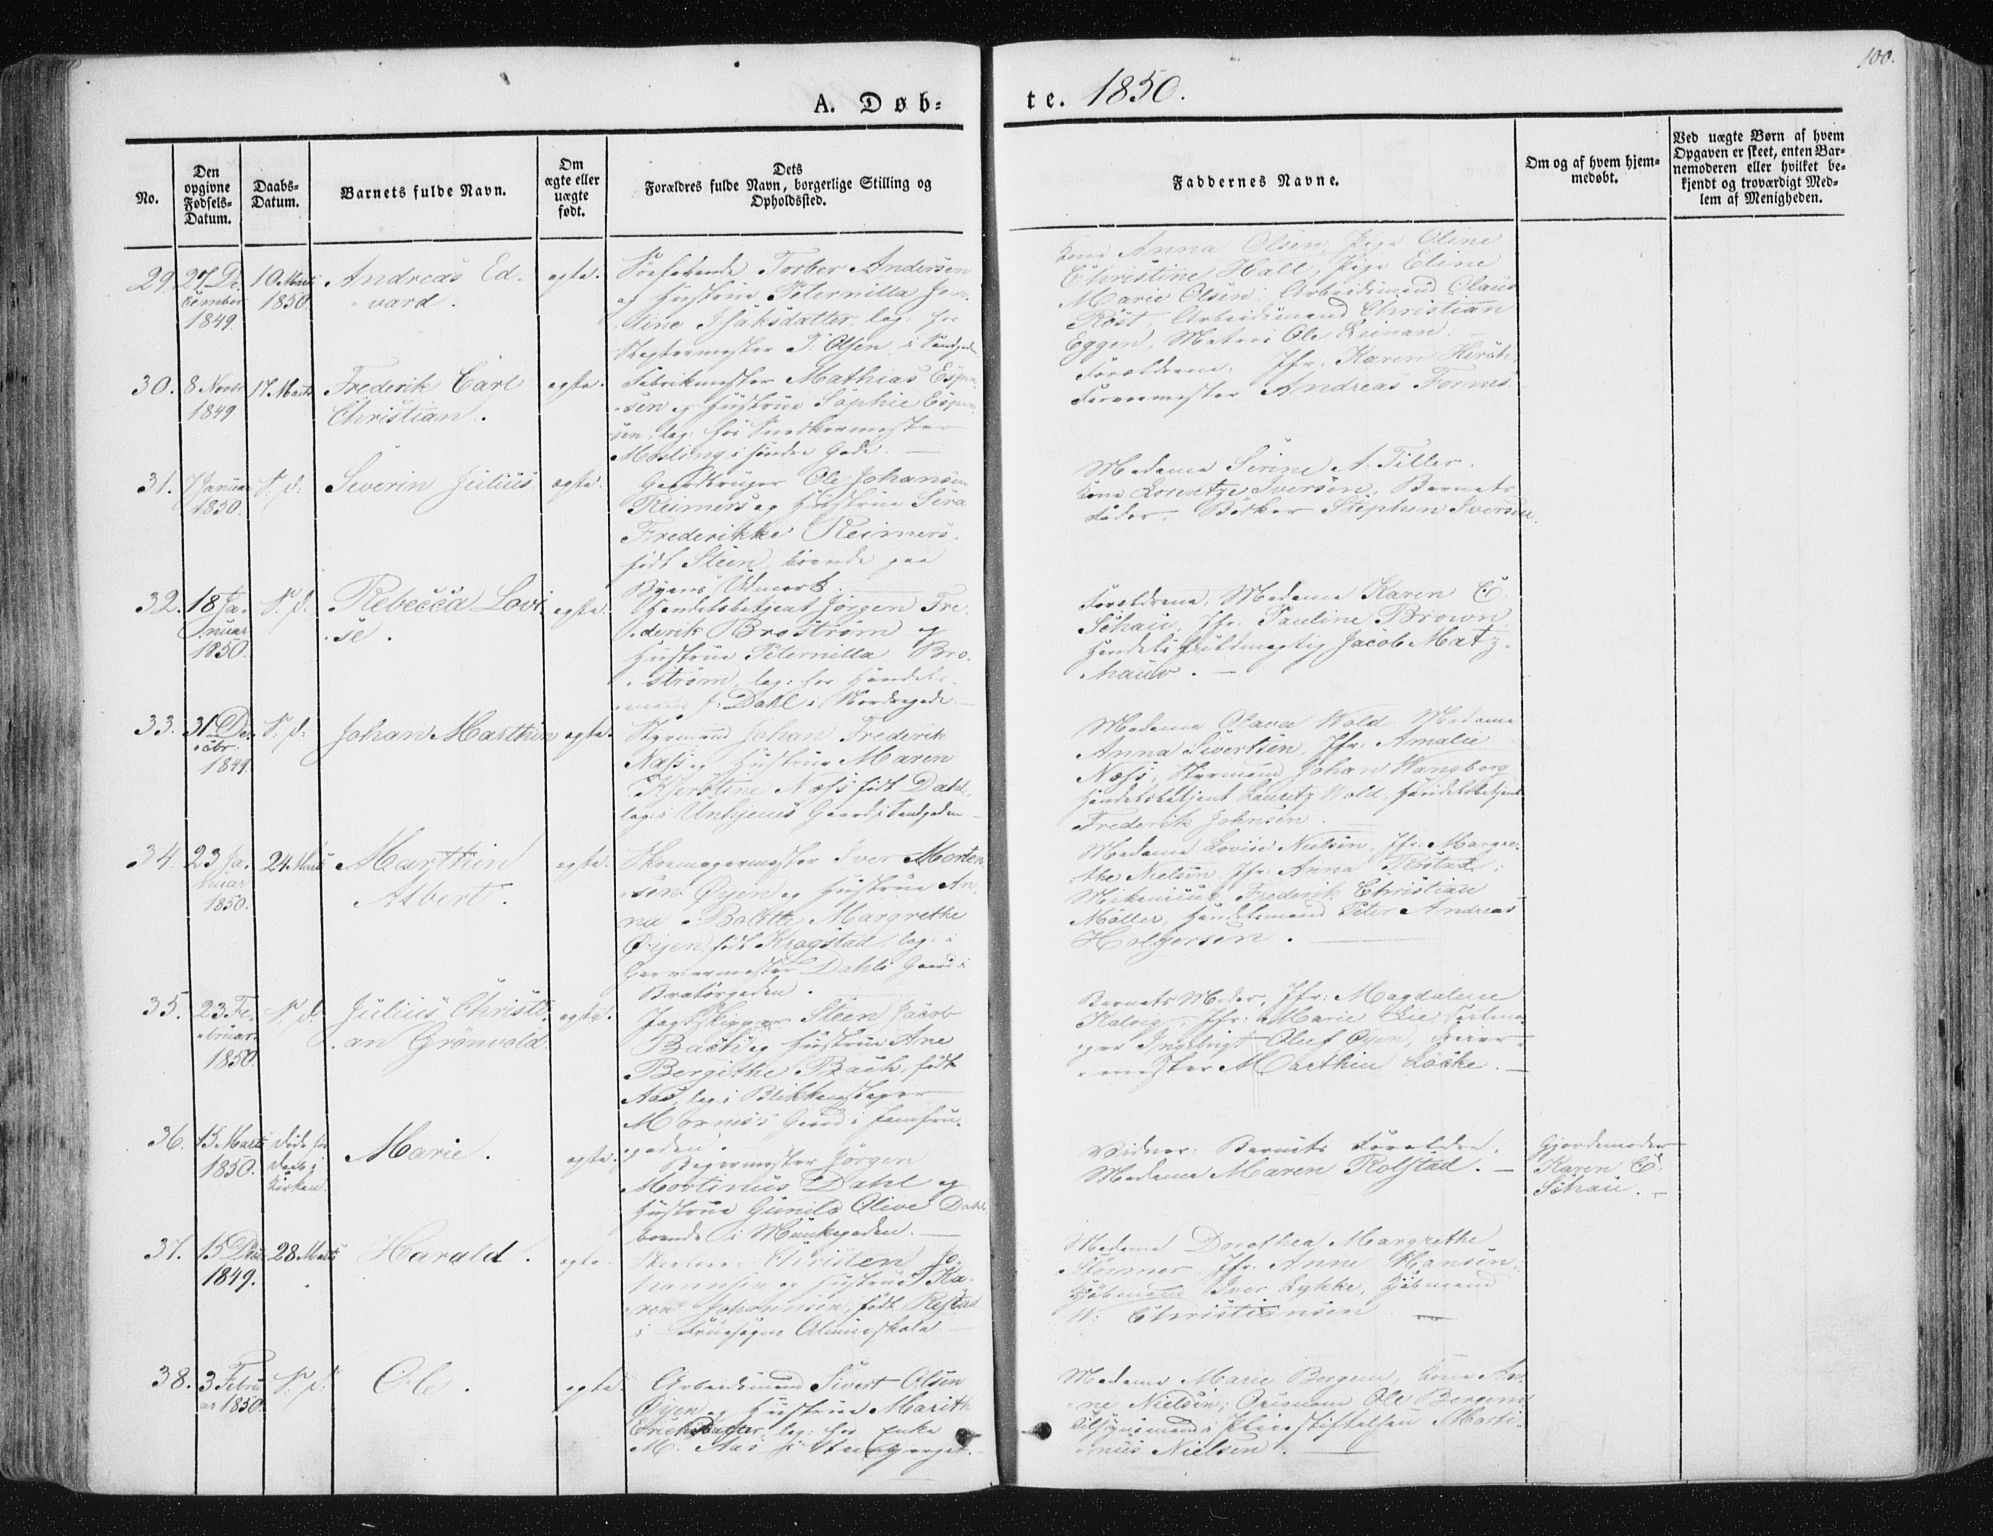 100.
A. Døb=
te. 1850.
No.
Den
opgivne
Fødsels-
Datum.
Daabs-
Datum.
Barnets fulde Navn.
Om
ægte eller
uægte
født.
Dets
Forældres fulde Navn, borgerlige Stilling og
Opholdssted.
Faddernes Navne.
Om og af hvem hjem-
medøbt.
Ved uægte Børn af hvem
Opgaven er skeet, enten Bar-
nemoderen eller hvilket be-
kjendt og troværdigt Med-
lem af Menigheden.
29.
27 De-
cember
1849.
10 Marts
1850.
Andreas Ed-
vard.
ægte.
Søefarende Torber Andersen
og Hustrue Peternilla
Isaksdatter, log: hos
Olsen i
Kone Anna Olsen, Pige Oline
Christine Hall, Pige Eline
Marie Olsen, Arbeidsmand Claus
Röst, Arbeidsmand Christian
Eggen, Matros Ole
30.
8 Novbr
1849
17 Marts
Frederik Carl
Christian.
ægte.
Fabrikmester Mathias Espen-
sen og Hustrue Sophie Espen-
sen, log: hos Snedkermester
Mosling i Søndre Gade.
Forældrene, Jfr: Karen Hirsch,
Farvermester Andreas Fornæs.
31.
7 Januar
1850.
S: d:
Severin Julius
ægte.
Ole Johansen
Reimers og Hustrue Sira
Frederikke Reimers,
født Steen, boende paa
Byens Udmark.
Madame Sirine A. Tiller,
Kone Lorentze Iversen, Barnets
Fader, Bödker Stephen Iversen.
32.
18 Ja-
nuar
1850.
S: d:
Rebecca Lovi-
se.
ægte.
Handelsbetjent Jörgen Fre-
derik Broström og
Hustrue Peternilla Bro-
ström, log: hos Handels-
mand J: Dahl i Nordregade.
Forældrene, Madame Karen C.
Schau, Jfr: Pauline Brown,
Handels Fuldmægtig Jacob Matz-
33.
31 De-
cbr.
1849.
S: d:
Johan Marthin
ægte.
Styrmand Johan Frederik
Næss og Hustrue Maren
Kjerstine Næss født Dahl,
log: i Gaard i Sandgaden
Madame Olava Wold, Madame
Anna Sivertsen, Jfr: Amalie
Næss, Styrmand Johan Wangberg
Handelsbetjent Lauritz Wold, Handelsbetjent
Frederik Johnsen.
34.
23 Ja-
nuar
1850.
24 Marts
Marthin
Albert.
ægte.
Skomagermester Iver Morten-
sen Øyen og Hustrue An-
na Bolette Margrethe
Øyen, født Kragstad, log: i
Garvermester Dahls Gaard i
Bratörgaden.
Madame Lovise Nielsen, Jfr: Margre-
the Nielsen, Jfr: Anna
Frederik Christian
Möller, Handelsmand Peter Andreas
Holgersen.
35.
23 Fe-
bruar
1850.
S: d:
Julius Christi-
an Grönvold
ægte.
Jagtskipper Steen Jacob
Bach og Hustrue Ane
Bergithe Bach, født
Aas, log: i Blikkenslager
Gaard i Jomfru-
gaden.
Barnets Moder, Jfr: Magdalene
Kalvig, Jfr: Marie Lie
Ingebrigt Oluf Øyen,
mester Marthin Löcke.
36.
15 Marts
1850.
döde før
Daab i
Kirken.
Marie.
ægte.
Bagermester Jörgen
Martinus Dahl og
Hustrue Gunild Olive Dahl
boende i Munkegaden.
Vidner: Barnets Forældre,
Madame Maren Rolstad.
Gjordemoder
Karen C:
Schau.
37.
15 Decbr
1849.
28 Marts
Harald.
ægte
Christen Jo-
hannsen og Hustrue Ka-
ren Johannsen, født
i Fruesogns Almueskole
Madame Dorothea Margrethe
Störmer, Jfr: Anne Hansen,
Kjöbmand Iver Lykke, Kjöbmand
W: Christiansen
38.
3 Febru-
ar 1850.
S: d:
Ole.
ægte.
Arbeidsmand Sivert Olsen
Øyen og Hustrue Marith
Erichsdatter, log: hos Enke
M. Aas i
Madame Marie Bergum, Kone An-
ne Nielsen, Ole Bergum
Martin-
nus Nielsen.